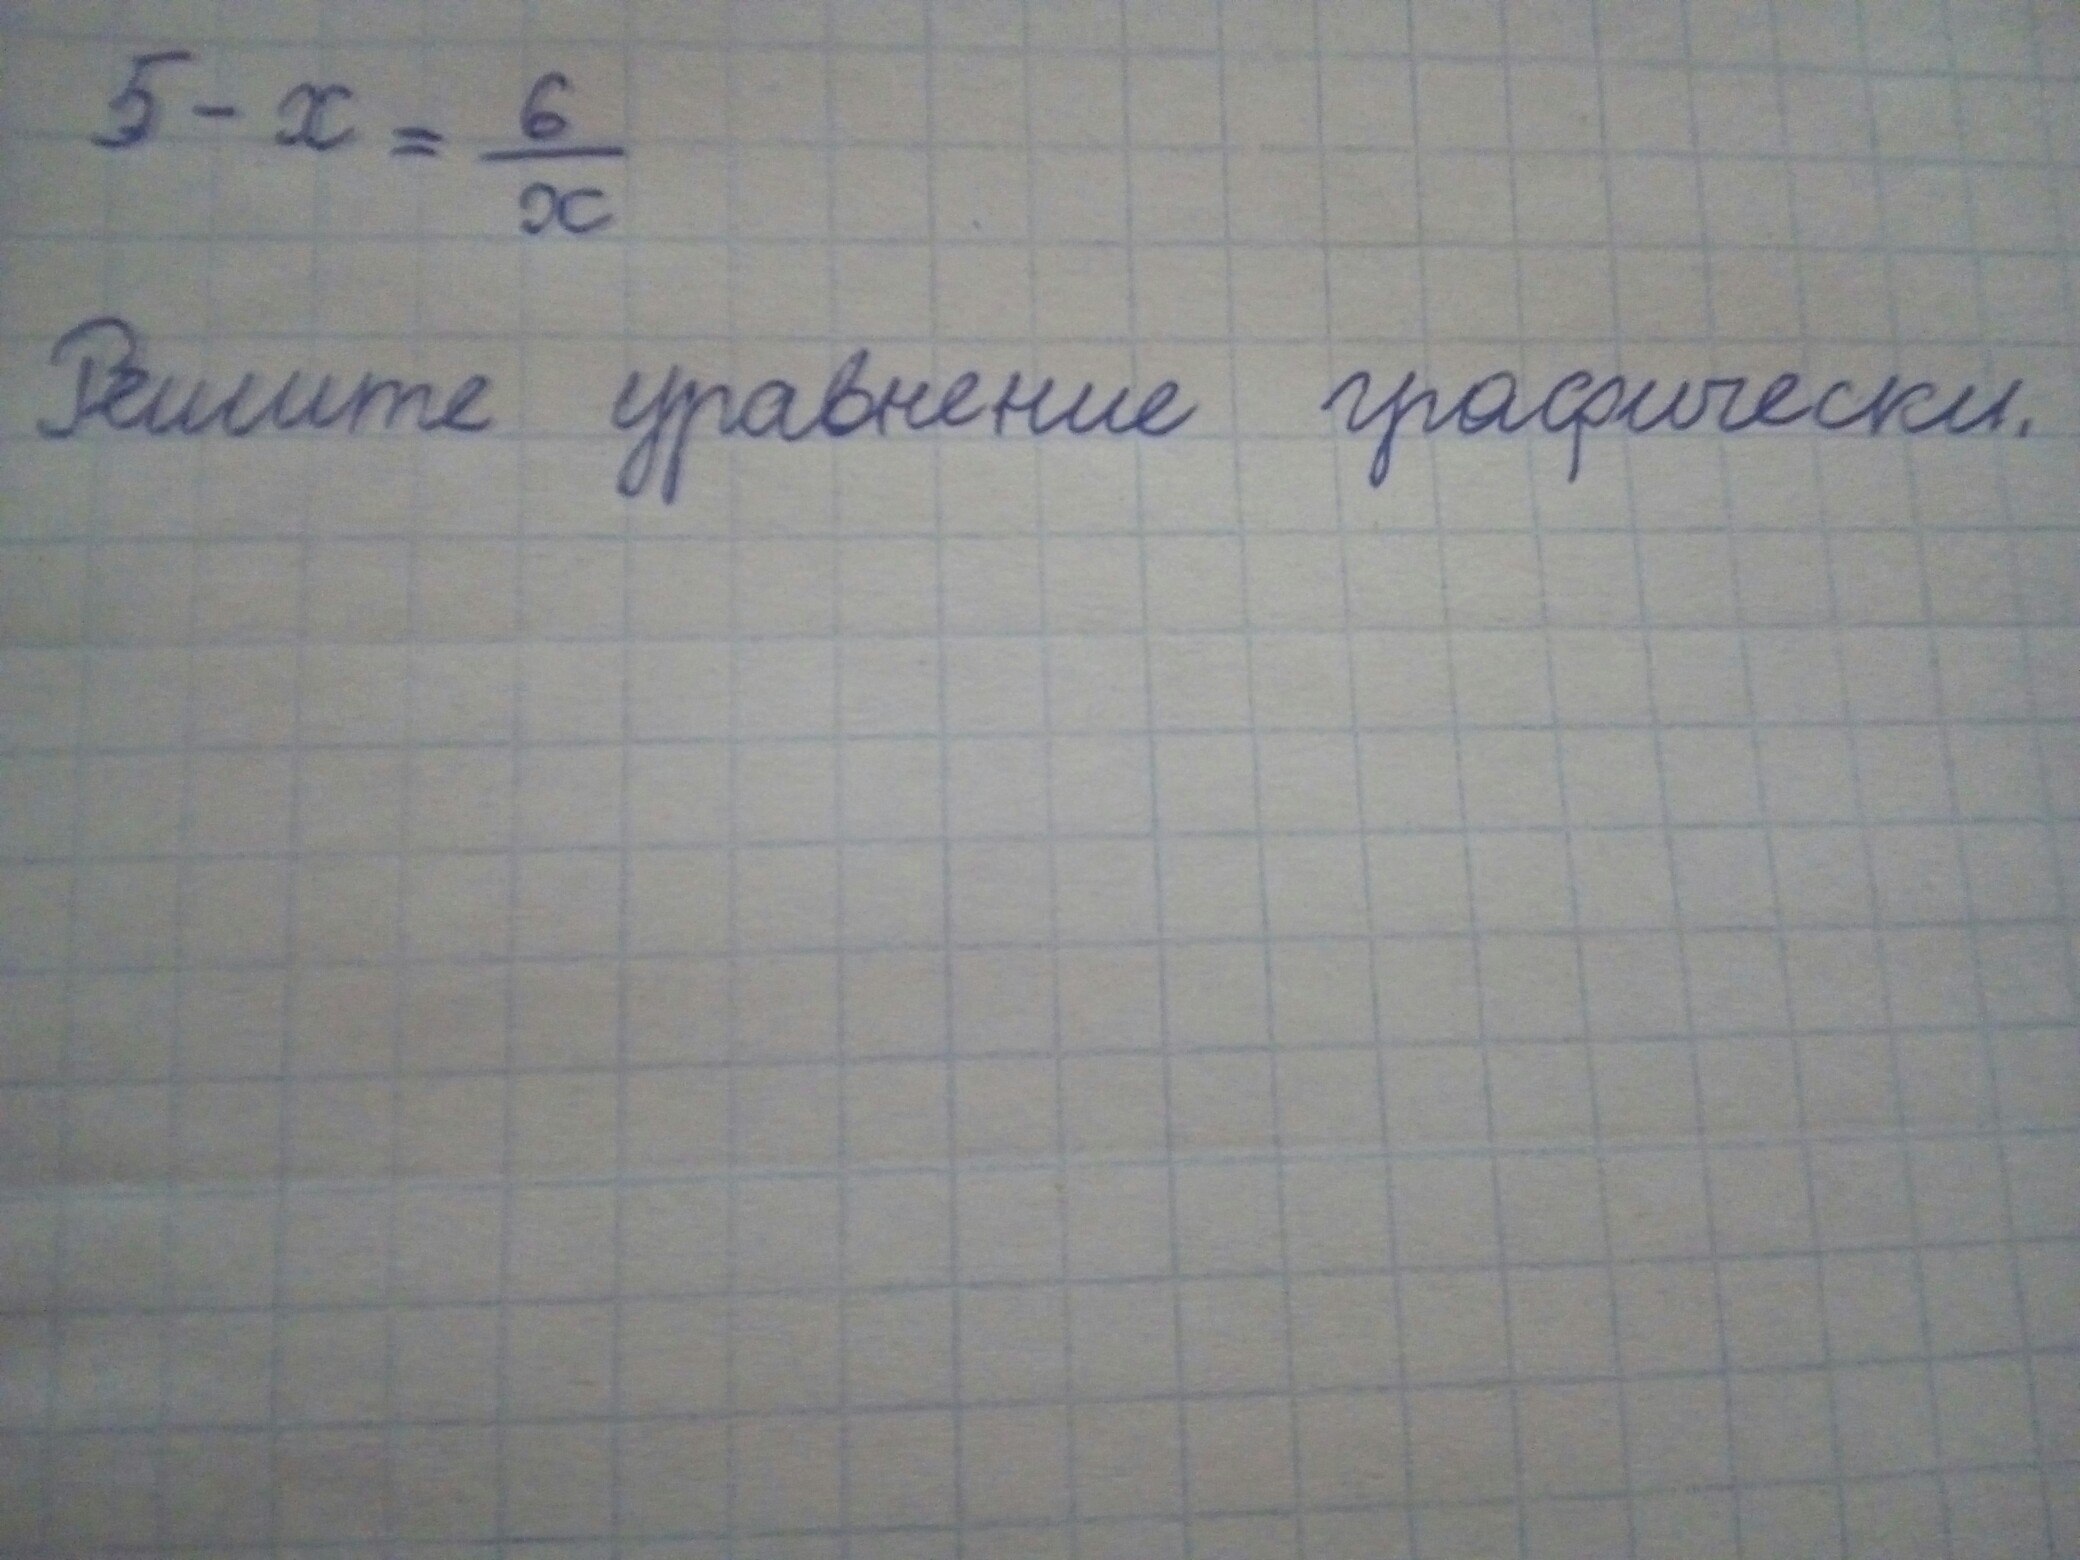 5 - x = 6/x
Решите уравнение графически.